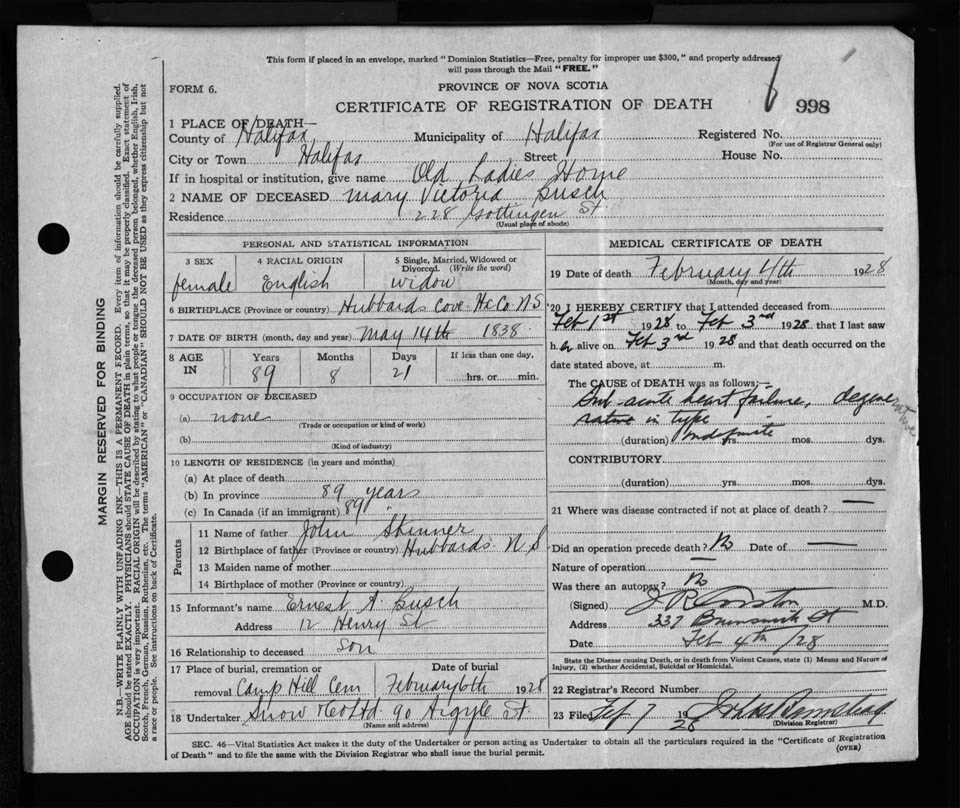 This form if placed in an envelope, marked "Dominion Statistics—Free, penalty for improper use $300," and properly addressed
will pass through the Mail "FREE."
FORM 6.
PROVINCE OF NOVA SCOTIA
CERTIFICATE OF REGISTRATION OF DEATH
998
1 PLACE OF DEATH—
County of Halifax Municipality of Halifax Registered No.
(For use of Registrar General only)
City or Town Halifax Street House No.
If in hospital or institution, give name Old Ladies Home
2 NAME OF DECEASED Mary Victoria Busch
Residence 228 Gottingen St.
(Usual place of abode)
PERSONAL AND STATISTICAL INFORMATION
3 SEX 4 RACIAL ORIGIN 5 Single, Married, Widowed or Divorced. (Write the word)
female English widow
6 BIRTHPLACE (Province or country) Hubbards Cove Hx Co. N S
7 DATE OF BIRTH (month, day and year) May 14th 1838
8 AGE IN Years Months Days If less than one day,
89 8 21 hrs. or min.
9 OCCUPATION OF DECEASED
(a) none
(Trade or occupation or kind of work)
(b)
(Kind of industry)
10 LENGTH OF RESIDENCE (in years and months)
(a) At place of death
(b) In province 89 years
(c) In Canada (if an immigrant) 89 "
Parents
11 Name of father John Skinner
12 Birthplace of father (Province or country) Hubbards N. S
13 Maiden name of mother
14 Birthplace of mother (Province or country)
15 Informant's name Ernest A. Busch
Address 12 Henry St
16 Relationship to deceased Son
17 Place of burial, cremation or removal Camp Hill Cem Date of burial February 6th 1928
18 Undertaker Snow & Co Ltd. 90 Argyle St.
(Name and address)
MEDICAL CERTIFICATE OF DEATH
19 Date of death February 4th 1928
(Month, day and year)
20 I HEREBY CERTIFY that I attended deceased from
Feb 1st 1928 to Feb 3rd 1928. that I last saw
h er alive on Feb 3rd 1928 and that death occurred on the
date stated above, at m.
The CAUSE OF DEATH was as follows:—
Sub acute heart failure, degene
rative in type
(duration) Indefinite yrs. mos. dys.
CONTRIBUTORY
(duration) yrs. mos. dys.
21 Where was disease contracted if not at place of death? —
Did an operation precede death? No Date of —
Nature of operation —
Was there an autopsy? No
(Signed) M.D.
Address 337 Brunswick St
Date Feb 4th/28
State the Disease causing Death, or in death from Violent Causes, state (1) Means and Nature of
Injury, (2) whether Accidental, Suicidal or Homicidal.
22 Registrar's Record Number
23 Filed Feb 7 1928
(Division Registrar)
SEC. 46—Vital Statistics Act makes it the duty of the Undertaker or person acting as Undertaker to obtain all the particulars required in the "Certificate of Registration
of Death" and to file the same with the Division Registrar who shall issue the burial permit.
(OVER)
MARGIN RESERVED FOR BINDING
N.B.—WRITE PLAINLY WITH UNFADING INK—THIS IS A PERMANENT RECORD. Every item of information should be carefully supplied.
AGE should be stated EXACTLY. PHYSICIANS should STATE CAUSE OF DEATH in plain terms, so that it may be properly classified. Exact statement of
OCCUPATION is very important. RACIAL ORIGIN will be described by stating to what people or tongue the deceased person belonged, whether English, Irish,
Scotch, French, German, Russian, Ruthenian, etc. The terms "AMERICAN" or "CANADIAN" SHOULD NOT BE USED as they express citizenship but not
a race or people. See instructions on back of Certificate.